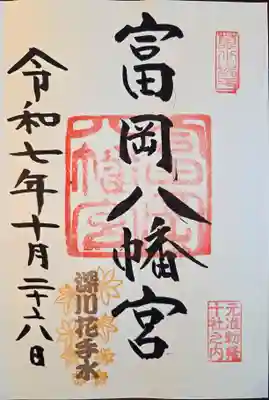 富岡八幡宮
令和七年十月二十八日
深川花手水
元准勅祭
十社之内
富岡
八幡宮